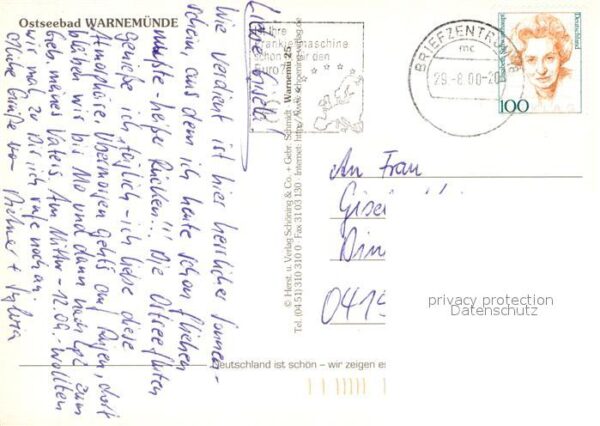 Ostseebad WARNEMÜNDE
Liebe Gisela!
Wie verdient ist hier herrlicher Sonnen-
schein aus dem ich heute schon fliehen
mußte - heißer Rücken!!! Die Ostseefluten
genieße ich täglich - ich liebe diese
Atmosphäre. Übermorgen geht's auf Rügen, dort
bleiben wir bis Mo und dann nach zum
meines Vaters. Am Mittw. - 12.09. - wollten
wir mal zu Dir, ich rufe noch an.
Liebe Grüße von + Sylvia
© Herst. u. Verlag Schöning & Co. + Gebr. Schmidt · Warnemü 25
Tel. (04 51) 310 310 0 · Fax 31 03 130 · Internet: http://
Ihre
Frankiermaschine
schon für den
Euro
BRIEFZENTRUM
mc
29.-8.00-20
Deutschland
100
An Frau
Gise
Din
0419
privacy protection
Datenschutz
Deutschland ist schön – wir zeigen es